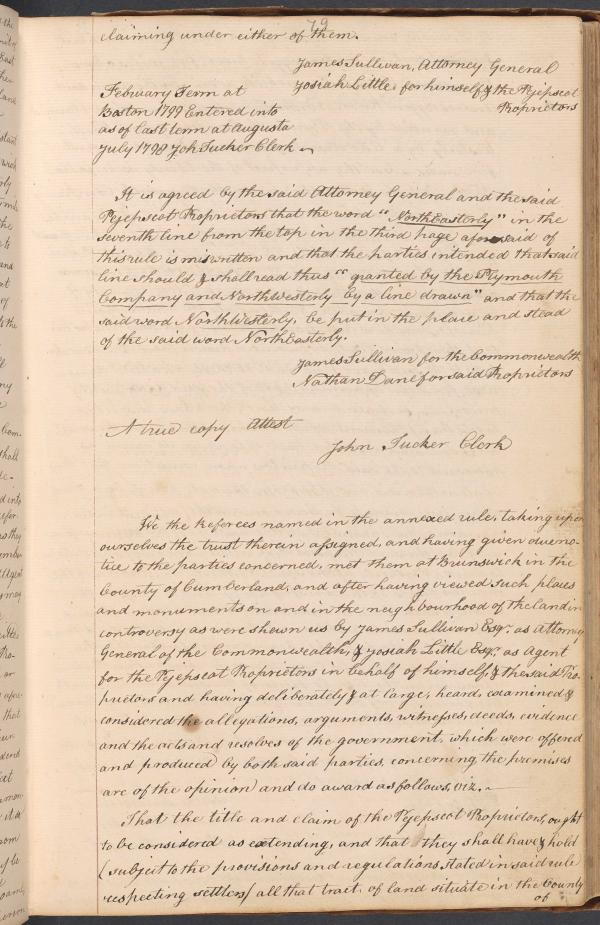 79
claiming under either of them.
James Sullivan, Attorney General
Josiah Little, for himself & the Pejepscot
Proprietors
February Term at
Boston 1799 Entered into
as of last term at Augusta
July 1798 Joh Tucher Clerk
It is agreed by the said Attorney General and the said
Pejepscot Proprietors that the word "North Easterly" in the
seventh line from the top in the third page aforesaid of
this rule is miswritten and that the parties intended that said
line should & shall read thus "granted by the Plymouth
Company and NorthWesterly by a line drawn" and that the
said word NorthWesterly, be put in the place and stead
of the said word NorthEasterly.
James Sullivan for the Commonwealth
Nathan Dane for said Proprietors
A true copy Attest
John Tucker Clerk
We the Referees named in the annexed rule, taking upon
ourselves the trust therein assigned, and having given due no-
tice to the parties concerned, met them at Brunswick in the
County of Cumberland, and after having viewed such places
and monuments on and in the neighbourhood of the land in
controversy as were shewn us by James Sullivan Esqr. as Attorney
General of the Commonwealth, & Josiah Little Esqr. as Agent
for the Pejepscot Proprietors in behalf of himself, & the said Pro-
prietors and having deliberately & at large, heard, examined &
considered the allegations, arguments, witnesses, deeds, evidence
and the acts and resolves of the government, which were offered
and produced by both said parties, concerning the premises
are of the opinion and do award as follows, viz.
That the title and claim of the Pejepscot Proprietors, ought
to be considered as extending, and that they shall have & hold
(subject to the provisions and regulations stated in said rule
respecting settlers) all that tract of land situate in the County
of